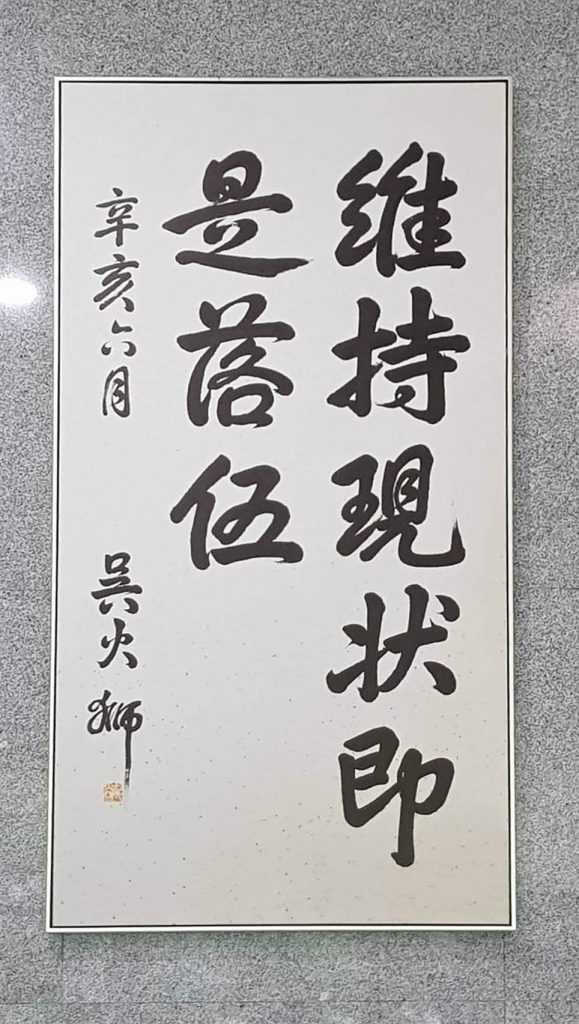 維持現状即
是落伍
辛亥六月
吴火獅